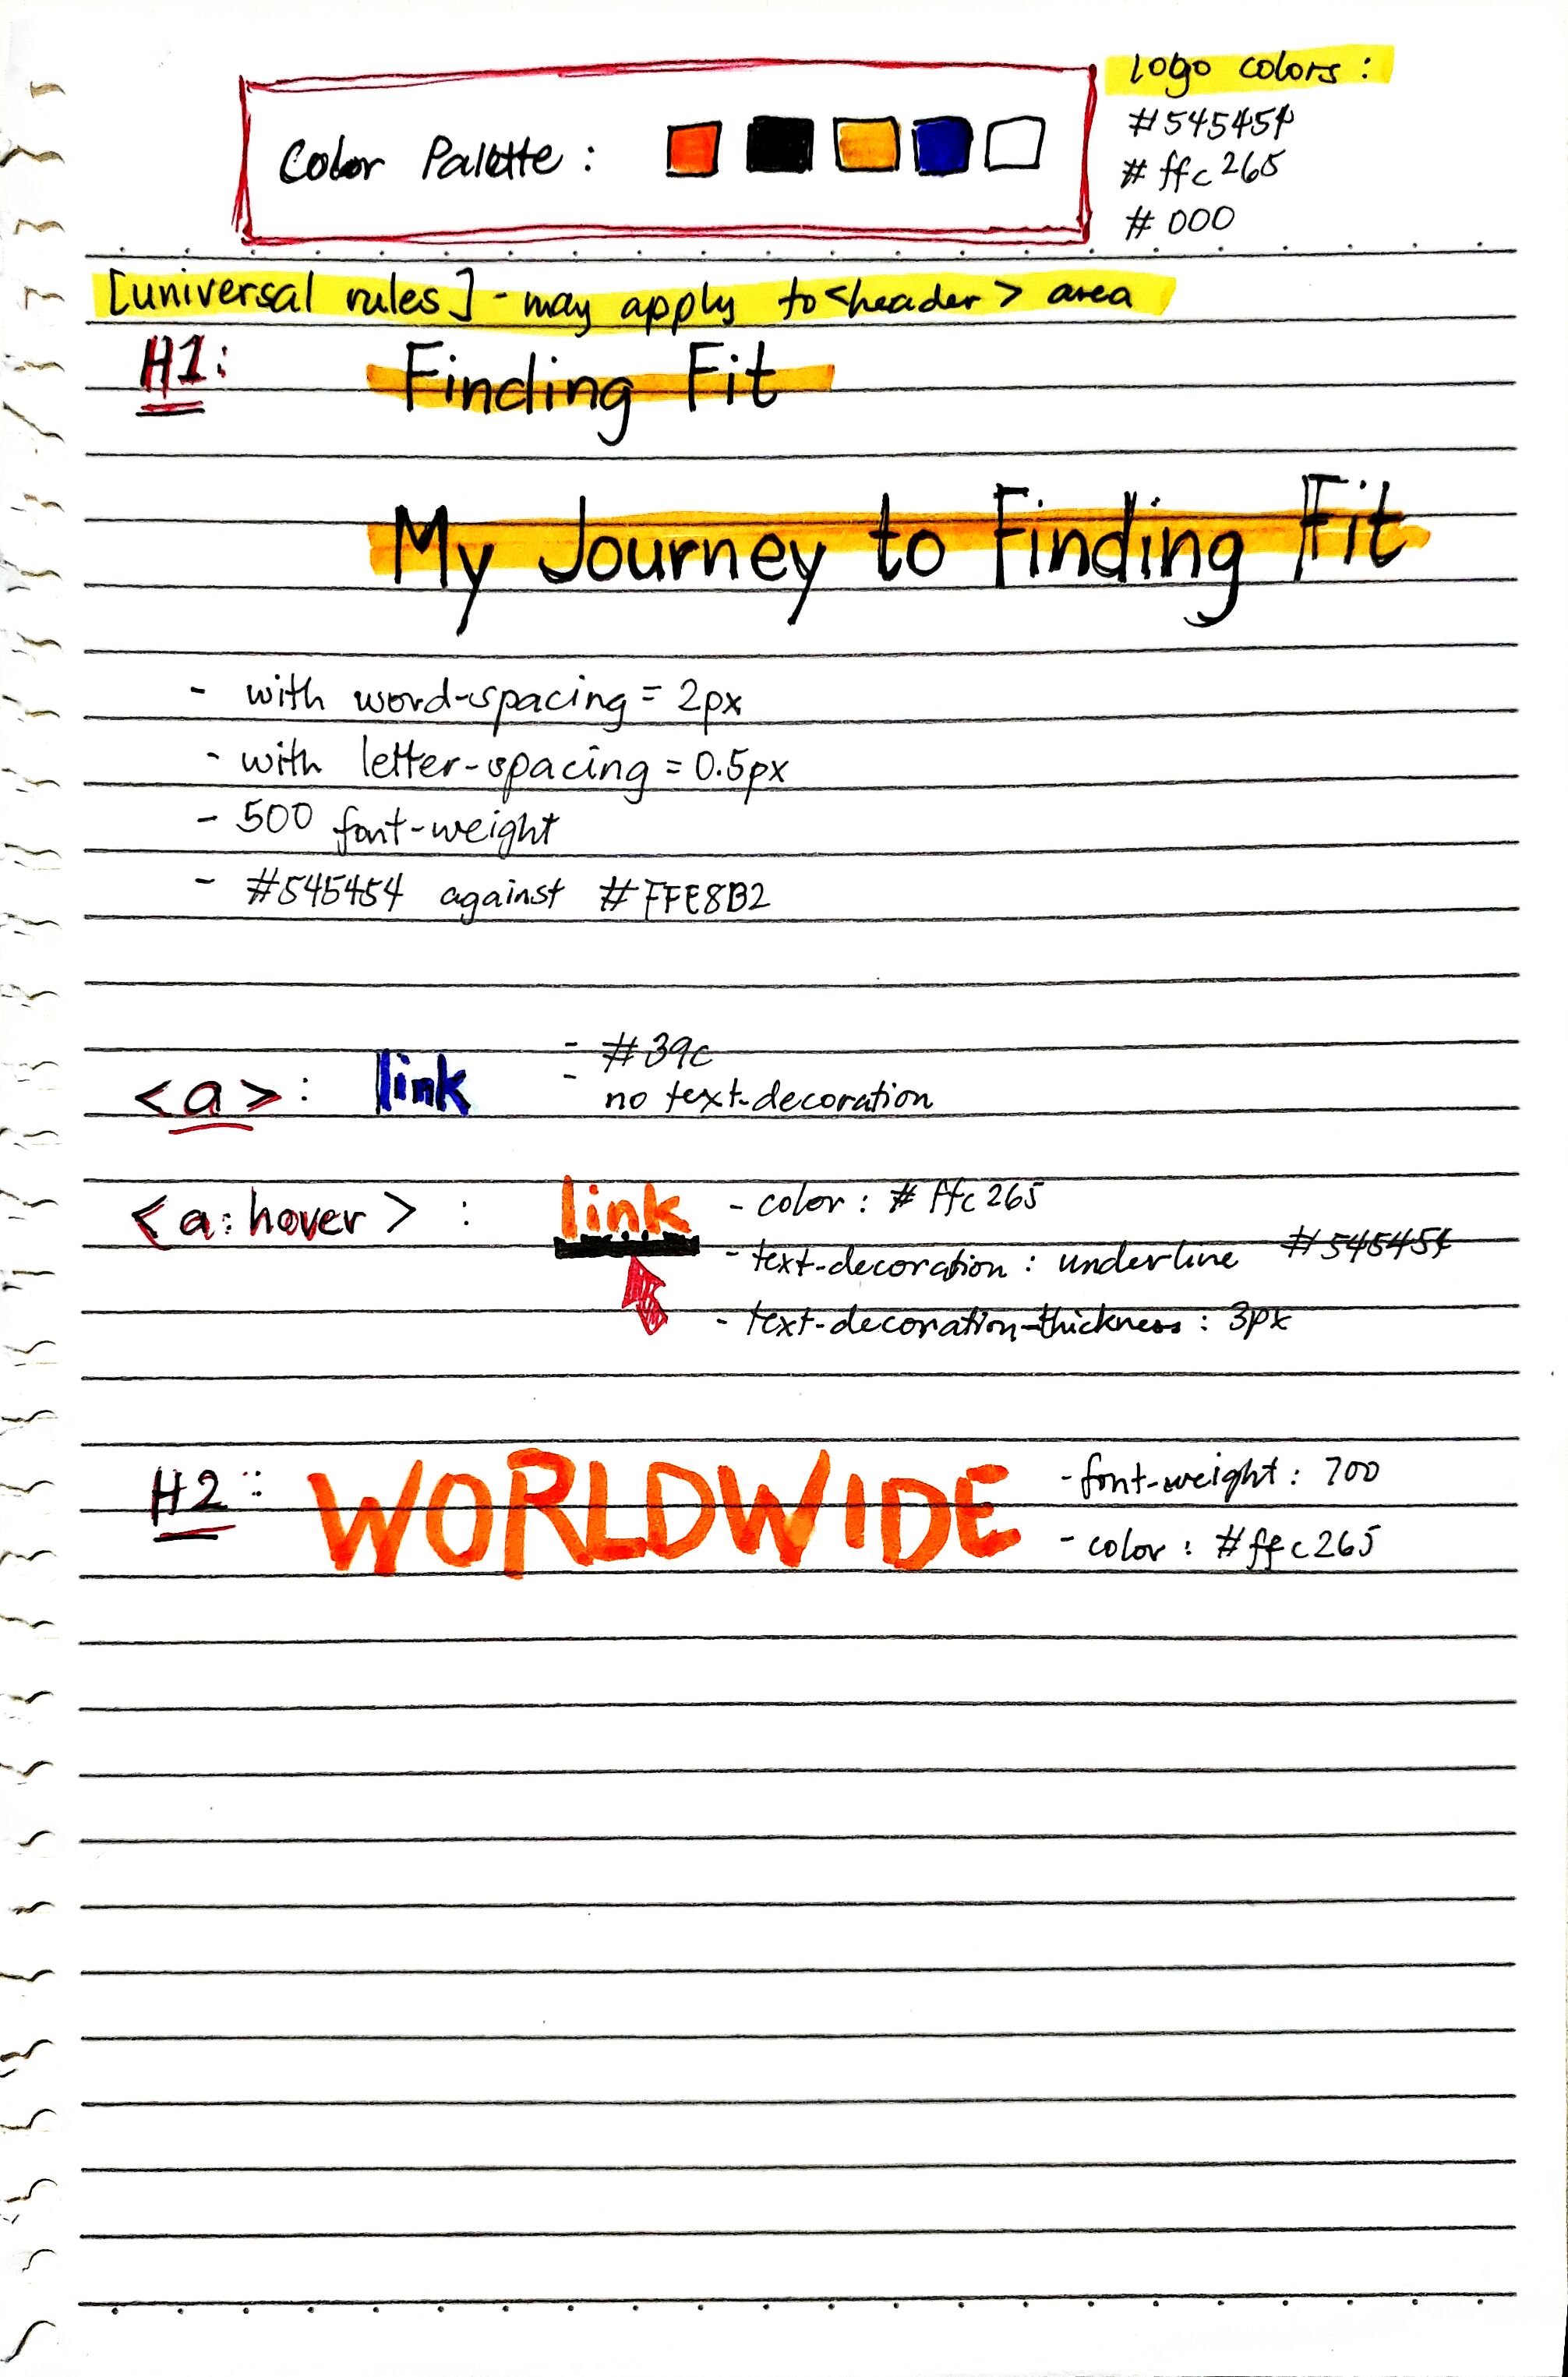 Color Palette :
logo colors :
#545454
# ffc265
# 000
[universal rules] - may apply to <header> area
H1:
Finding Fit
My Journey to Finding Fit
- with word-spacing = 2px
- with letter-spacing = 0.5px
- 500 font-weight
- #545454 against #FFE8B2
<a> : link
- #39c
- no text-decoration
<a:hover> : link
- color : # ffc265
- text-decoration : underline #545454
- text-decoration-thickness : 3px
H2 : WORLDWIDE
- font-weight : 700
- color : #ffc265